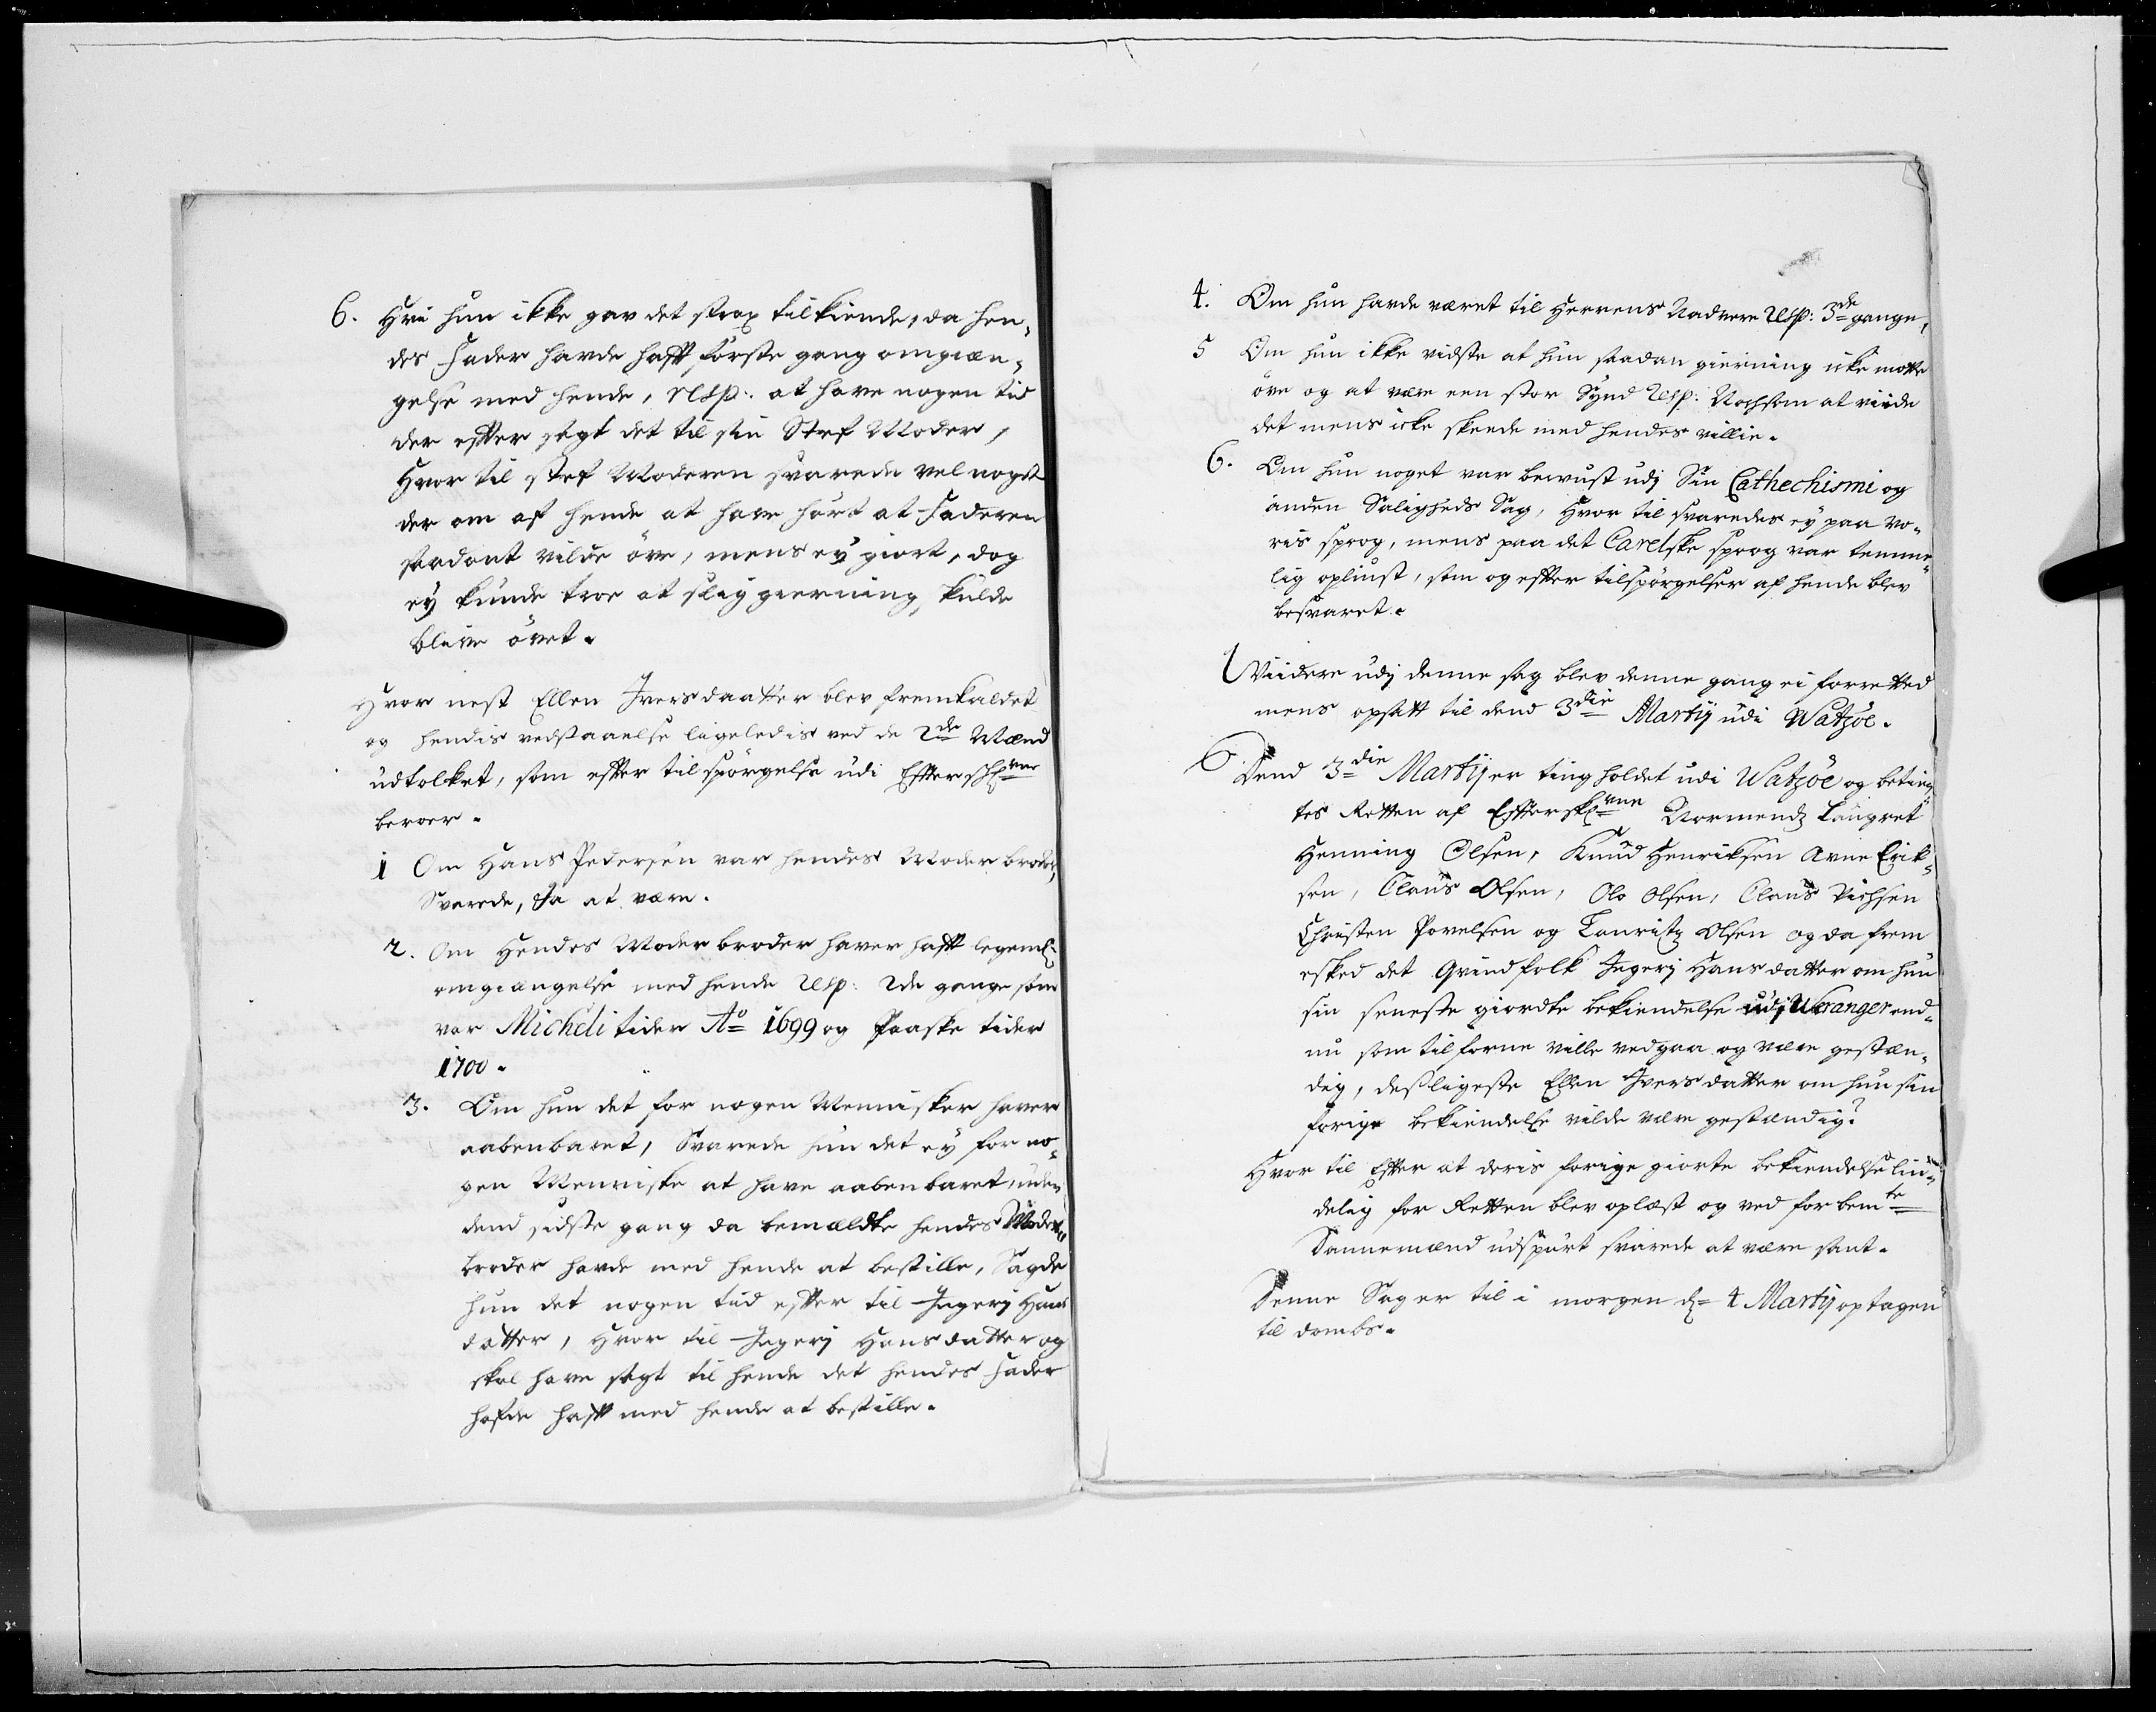 6. Hvi hun ikke gav det strax tilkiende, da hen„
des Fader havde hafft förste gang omgiæn„
gelse med hende, Resp: at have nogen tid
der effter sagt det til sin Stef Moder,
Hvor til stef Moderen svarede vel noget
der om af hende at have hört at Faderen
saadant vilde öve, mens eÿ giort, dog
eÿ kunde troe at slig gierning skulde
blive övet.
Hvor nest Ellen Iversdaatter blev fremkaldet
og hendis vedstaaelse ligeledis ved de 2de Mænd
udtolket, som effter tilspörgelse udi Effterschrvne
beroer.
1 Om Hans Pedersen var hendes Moder broder,
Svarede, Ja at være.
2. Om Hendes Moder broder haver hafft legeml:
omgiængelse med hende Resp: 2de gange som
var Micheli tider Ao 1699 og Paaske tider
1700.
3. Om hun det for nogen Mennisker haver
aabenbaret, Svarede hun det eÿ for no„
gen Menniske at have aabenbaret, uden
dend sidste gang da bemældte hendes Moder
broder havde med hende at bestille, Sagde
hun det nogen tid effter til Ingerj Hans
datter, hvor til Ingerj Hansdatter og
skal have sagt til hende det hendes Fader
hafde hafft med hende at bestille.
4. Om hun havde været til Herrens Nadvere Resp: 3de gange,
5 Om hun ikke vidste at hun saadan gierning icke motte
öve og at være een stor Synd Resp: Nochsom at viide
det mens icke skeede med hendes villie.
6. Om hun noget var bewust udj Sin Cathechismi og
anden Saligheds Sag, Hvor til svaredes eÿ paa vo„
ris sprog, mens paa det Carelske sprog var temme„
lig opliust, som og effter tilspörgelser af hende blev
besvaret.
Viidere udj denne sag blev denne gang ei forretted
mens opsatt til dend 3die Martij udi Watzöe.
Dend 3die Martij er ting holdet udi Watzöe og betien„
tes Retten af Effterskrvne Normendz Laugret
Henning Olsen, Knud Henriksen Arne Erik„
sen, Claus Olsen, Ole Olsen, Claus Pichsen
Christen Povelsen og Lauritz Olsen og da frem
esked det Qvindfolk Ingerj Hansdatter om hun
sin seneste giordte bekiendelse udj Weranger end„
nu som tilforne ville vedgaa og være gestæn„
dig, desligeste Ellen Iversdatter om hun sin
forige bekiendelse vilde være gestændig?
Hvor til Effter at deris forige giorte bekiendelse liu„
delig for Retten blev oplæst og ved for bemte
Sannemænd udspurt svarede at være sant.
Denne Sag er til i morgen d= 4 Martij optagen
til dombs.